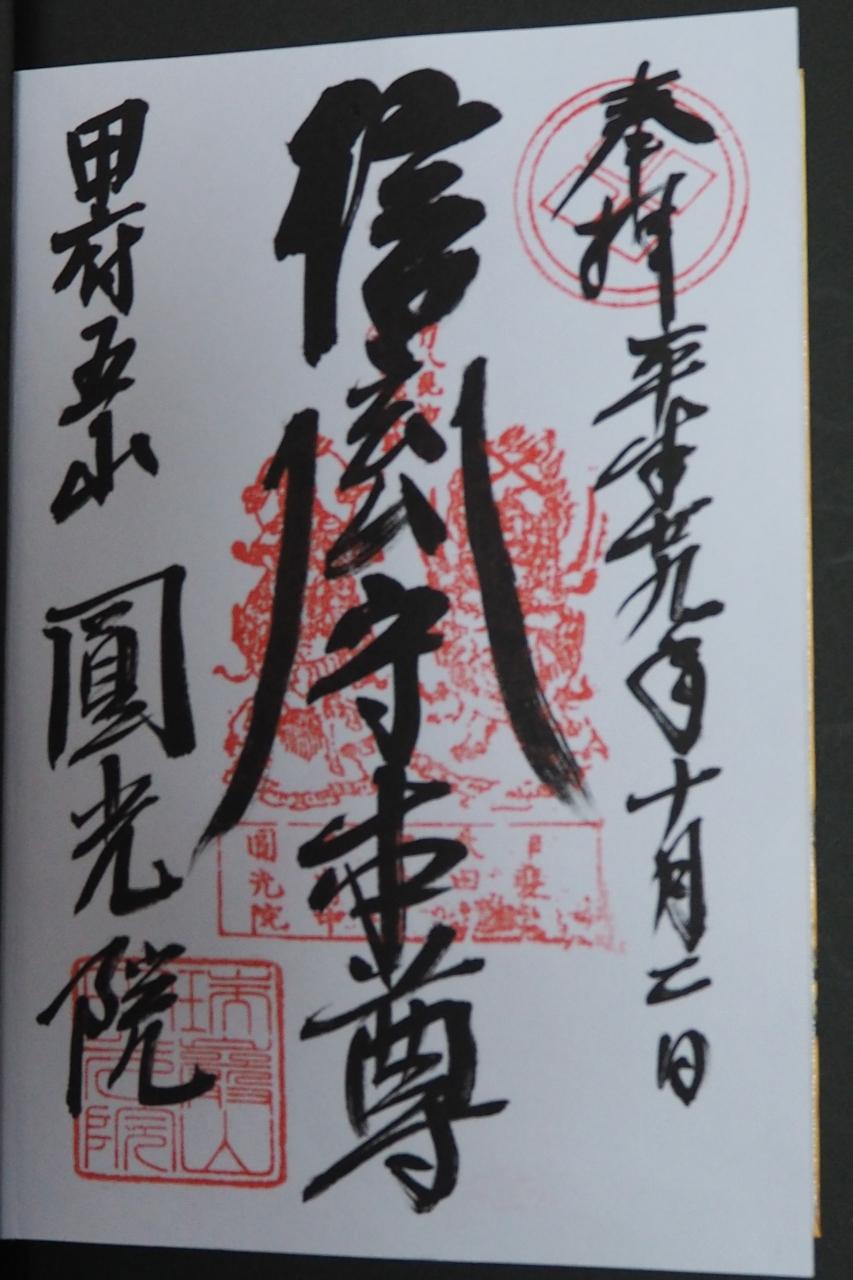 奉拝 平成廿九年十月二日
信玄公守本尊
甲府五山 圓光院
圓光院
瑞巖山
圓光院